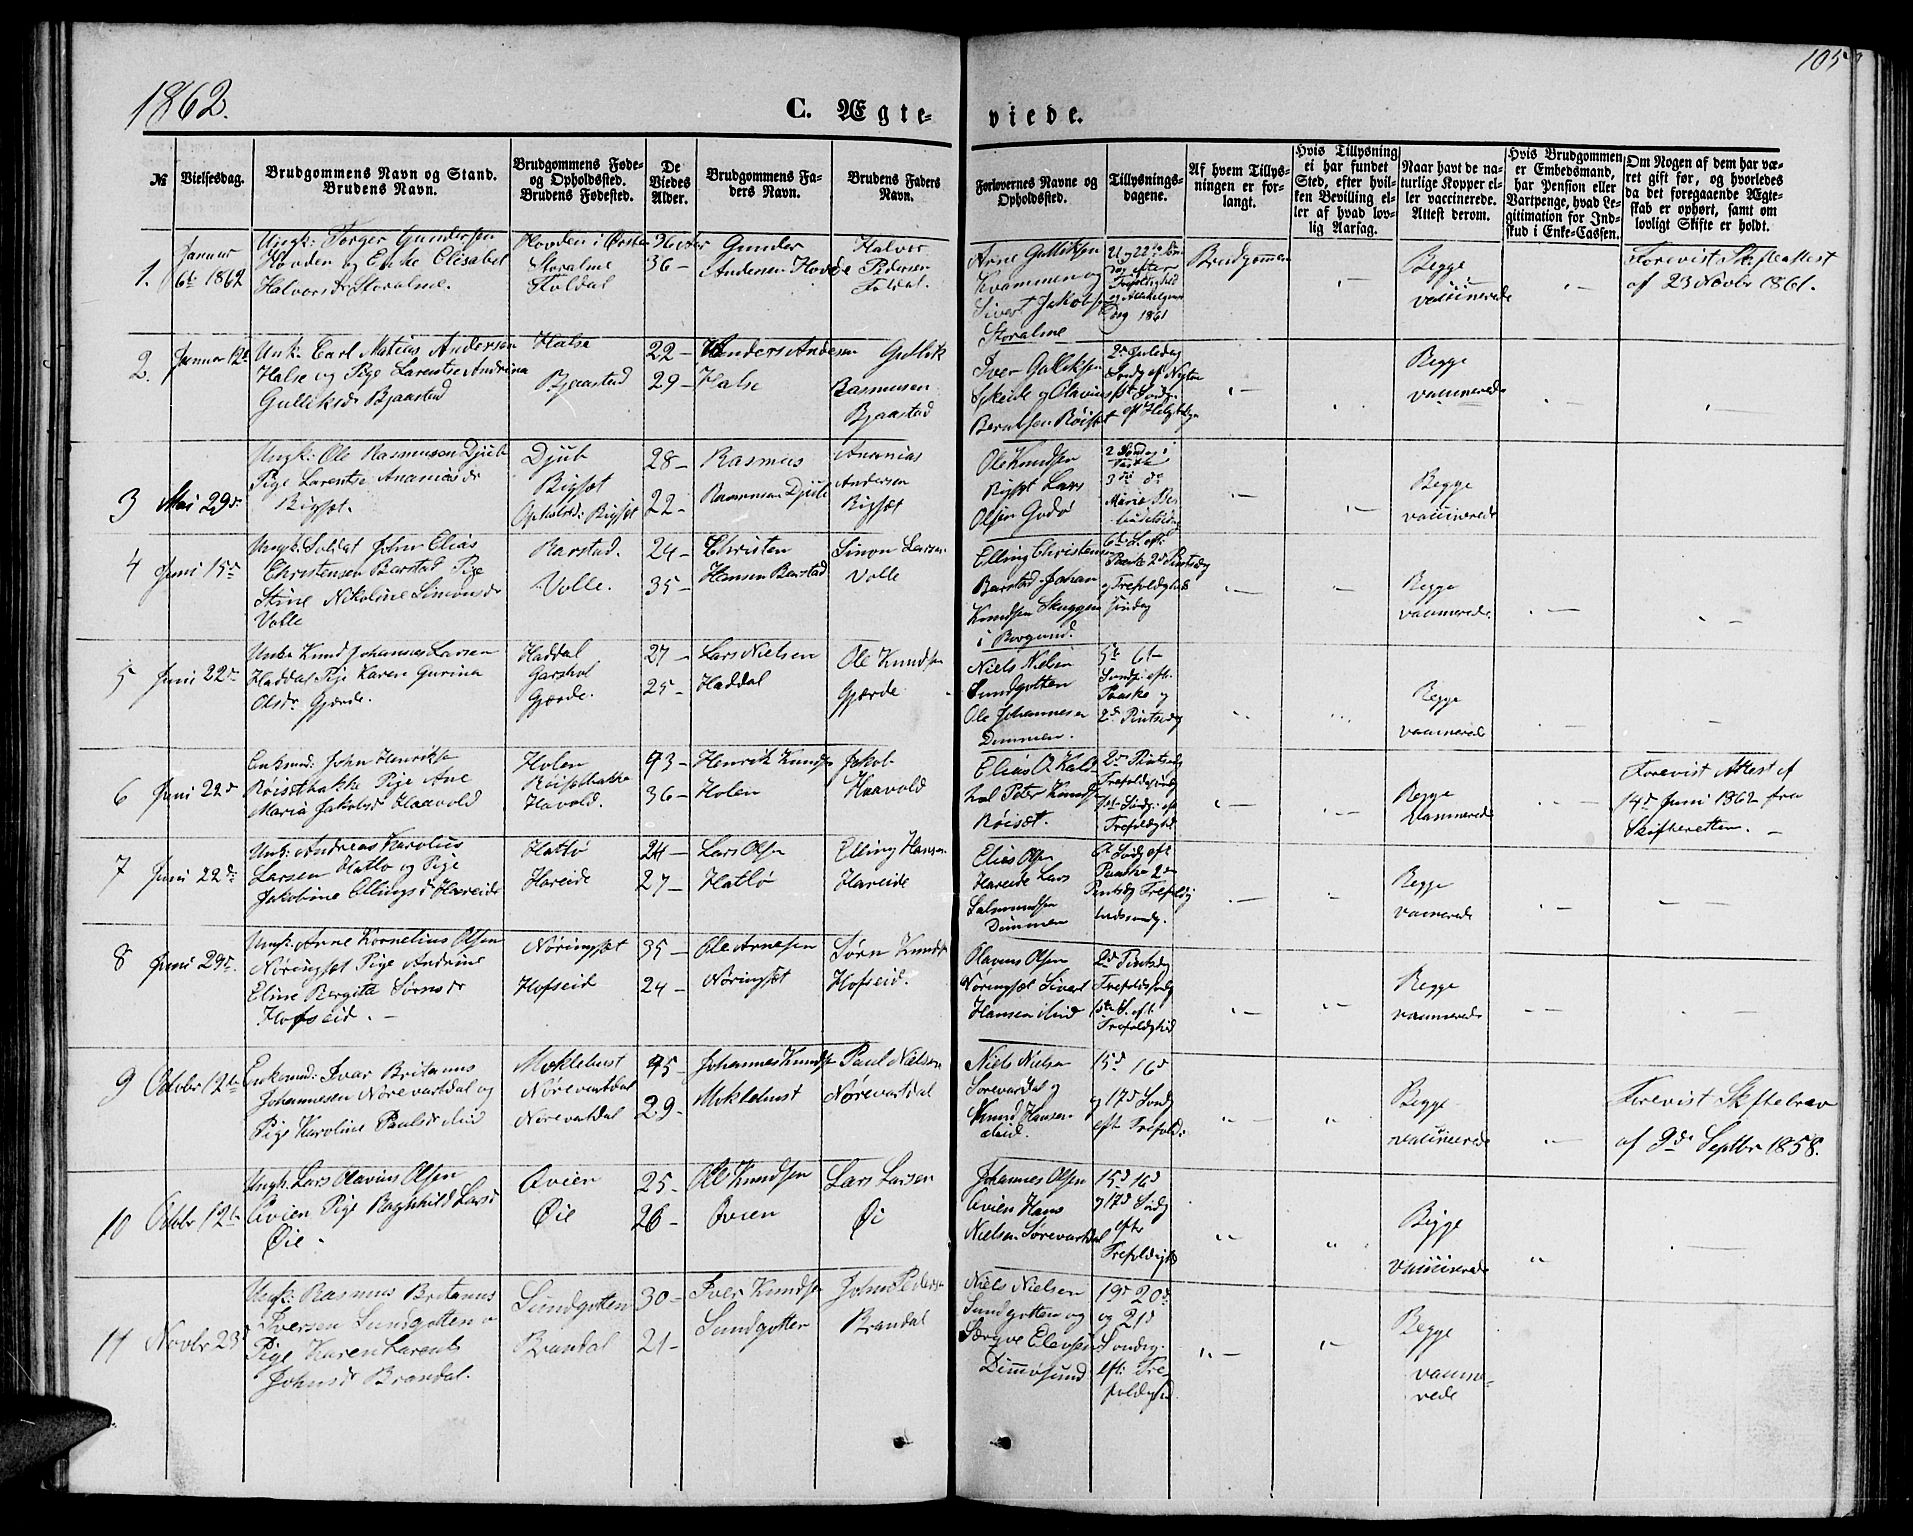 1862.
C. Ægte-
viede.
105
№
Vielsesdag.
Brudgommens Navn og Stand.
Brudens Navn.
Brudgommens Føde-
og Opholdssted.
Brudens Fødested.
De
Viedes
Alder.
Brudgommens Fa-
ders Navn.
Brudens Faders
Navn.
Forlovernes Navne og
Opholdssted.
Tillysnings-
dagene.
Af hvem Tillys-
ningen er for-
langt.
Hvis Tillysning
ei har fundet
Sted, efter hvil-
ken Bevilling el-
ler af hvad lov-
lig Aarsag.
Naar havt de na-
turlige Kopper el-
ler vaccinerede.
Attest derom.
Hvis Brudgommen
er Embedsmand,
har Pension eller
Vartpenge, hvad Le-
gitimation for Ind-
skud i Enke-Cassen.
Om Nogen af dem har væ-
ret gift før, og hvorledes
da det foregaaende Ægte-
skab er ophørt, samt om
lovligt Skifte er holdt.
1.
Januar
6te 1862
Ungk: Torger Gundersen
Hovden og Enke Elisabet
Halvorsdr Storalme.
Hovden i Ørsten
Storalme
36 -
Gunder
Andersen Hovde
Halvor
Pedersen
Arne Gulliksen
Kvammen og
Sivert Jakobs
Storalme
21 og 22de Søn
dag efter
Trefoldighed
og Allehelgens
Dag 1861
Brudgommen
Begge
vaccinerede
Forevist Skifteattest
af 23 Novbr 1861.
2.
Januar 12te
Ungk: Carl Matias Andersen
Halse og Pige Larentse Andrina
Gulliksdr Bjaastad
Halse
Bjaastad
22 -
29 -
Anders Andersen
Halse
Gullik
Rasmusen
Bjaastad
Iver Gulliksen
Skeide og Olavius
Berntsen Røiset
2den Juledag
Søndg ef Nytaar
1st Søndg.
Begge
vaccinerede
3
Mai 29de
Ungk: Ole Rasmusen Djub
Pige Larentse Ananiasdr
Bigset.
Djub
Bigset
Opholdsted: Bigset
28 -
22 -
Rasmus
Rasmusen Djub
Ananias
Andersen
Bigset
Ole Knudsen
Bigset Lars
Olsen Godø
2 Søndag i
Faste
3die do
Mariæ Be-
Begge
vaccinerede
4
Juni 15de
Ungk: Soldat John Elias
Christensen Barstad Pige
Stine Nikoline Simonsdr
Volle
Barstad.
Volle.
24 -
35 -
Christen
Hansen Barstad
Simon Larsen
Volle
Elling Christensen
Barstad Johan
Knudsen Skuggen
i Borgund.
6te S. eft:
Paaske 2d Pintsedg
og Trefoldigheds
Søndag
Begge
vaccinerede
5
Juni 22de
Ungk: Knud Johannes Larsen
Haddal Pige Karen Gurina
Olsdr Gjerde.
Haddal
Garshol
Gjerde.
27 -
25 -
Lars Nielsen
Haddal
Ole Knudsen
Gjærde
Niels Nielsen
Sundgotten
Ole Johannesen
Dimmen.
5te 6te
Søndg: eft.
Paaske og
2d Pintsedg
Begge
vaccinerede
6
Juni 22de
Enkmd: John Henriksen
Røisetbakke Pige Ane
Maria Jakobsdr Haavold
Holen
Røisetbakke
Havold.
43 -
36 -
Henrik Knudsen
Holen
Jakob
Haavold
Elias A. Kald-
hol Peter Knudsen
Røiset.
2d Pintsedg
Trefoldgsøndg
1st Søndg: eft
Trefoldighed
Begge
vaccinerede
Forevist Attest af
14d Juni 1862 fra
Skifteretten. -
7
Juni 22de
Ungk: Andreas Karolius
Larsen Hatlø og Pige
Jakobine Ellingsdr Hareide
Hatlø
Hareide
24 -
27 -
Lars Olsen
Hatlø
Elling Hansen
Hareide
Elias Olsen
Hareide Lars
Salmundsen
Dimmen
6te Søndg eft
Paaske 2den
Pintsedg Trefoldig
hedssøndg.
Begge
vaccinerede
8
Juni 29de.
Ungk: Arne Kornelius Olsen
Nøringset Pige Andrine
Eline Bergita Sørnsdr
Hofseid. -
Nøringset
Hofseid
35 -
24 -
Ole Arnesen
Nøringset
Sørn Knudsen
Hofseid.
Olavus Olsen
Nøringset Sivert
Hansen Alnd
2d Pintsedg
Trefoldsøndg
1ste S. eft.
Trefoldighed
Begge
vaccinerede
9
Octobr 12te
Enkemd: Ivar Britanus
Johannesen Nørevartdal og
Pige Karoline Paulsdr ibid
Moklebust
Nørevartdal
Nørevartdal
45 -
29 -
Johannes Knudsen
Moklebust
Paul Nielsen
Nørevartdal
Niels Nielsen
Sørevartdal og
Knud Hansen
ibid.
15d 16d
og 17d Søndg
eft Trefold:
Begge
vaccinerede
Forevist Skiftebrev
af 9de Septbr 1858.
10
Octobr 12te
Ungk: Lars Olavius Olsen
Øvien Pige Raghnild Larsdr
Øie.
Øvien
Øie
25 -
26 -
Ole Knudsen
Øvien
Lars Larsen
Øi
Johannes Olsen
Øvien Hans
Nielsen Sørevartdal
15d 16d
og 17d Søndg
efter
Trefoldigh
Begge
vaccinerede
11
Novbr 23d
Ungk: Rasmus Britanus
Iversen Sundgotten o
Pige Karen Larents
Johnsdr Brandal.
Sundgotten
Brandal
30 -
21 -
Iver Knudsen
Sundgotten
John Peders
Brandal
Niels Nielsen
Sundgotten og
Elevsen
Dimøsund
19d 20de
og 21d
Søndg.
eft: Tre-
foldighed.
Begge
vaccine-
rede